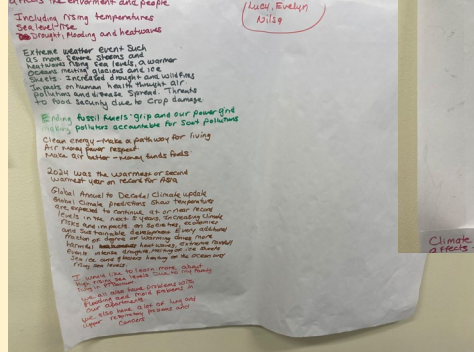 affects the enviorment and people
Including rising temperatures
Sea level rise
Drought, flooding and heatwaves
Lucy, Evelyn
Nilsa
Extreme weather event Such
as more severe storms and
heatwaves rising sea levels, a warmer
oceans melting glaciers and ice
Sheets. Increased drought and wildfires
Impacts on human health thought air
pollutions and disease Spread. Threats
to food Security due to Crop damage
Ending fossil fuels' grip and our power grid
making polluters accountable for Soot pollutions
Clean energy - Make a pathway for living
Air Money power respect
Make air better - Money funds fuels.
2024 was the warmest or second
warmest year on record for Asia
Global Annual to Decadal Climate update
Global Climate predictions Show temperatures
are expected to continue at or near record
levels in the next 5 years. Increasing Climate
risks and impacts on societies, economies
and sustainable development. Every additional
fraction of degree of warming drives more
harmful heatwaves, extreme rainfall
events intense droughts, melting of ice sheets
Sea ice and glaciers heating of the ocean and
rising sea levels.
I would like to learn more about
rising sea levels. Due to my family
living in
we all also have problems with
flooding and mold problems in
our apartments.
we also have a lot of lung and
upper respiratory problems and
Cancers
Climate
affects